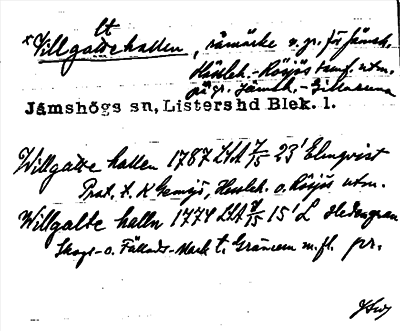 tt
x Villgattehallen, råmärke v. gr. för Jämsh.
Hässleh.-Rösjös samf. utm.
på gr. Jämsh. -
Jämshögs sn, Listershd Blek. l.
Willgatte hallen 1787 LSA 7/15 23' Elmqvist
Prot. t. K Gamsjö, Hessleh. o. Rösjös utm.
Willgatte halln 1774 LSA 8/15 15' L Hedengran
Skogs- o. Fällads-Mark t. Gränum m.fl. pr.